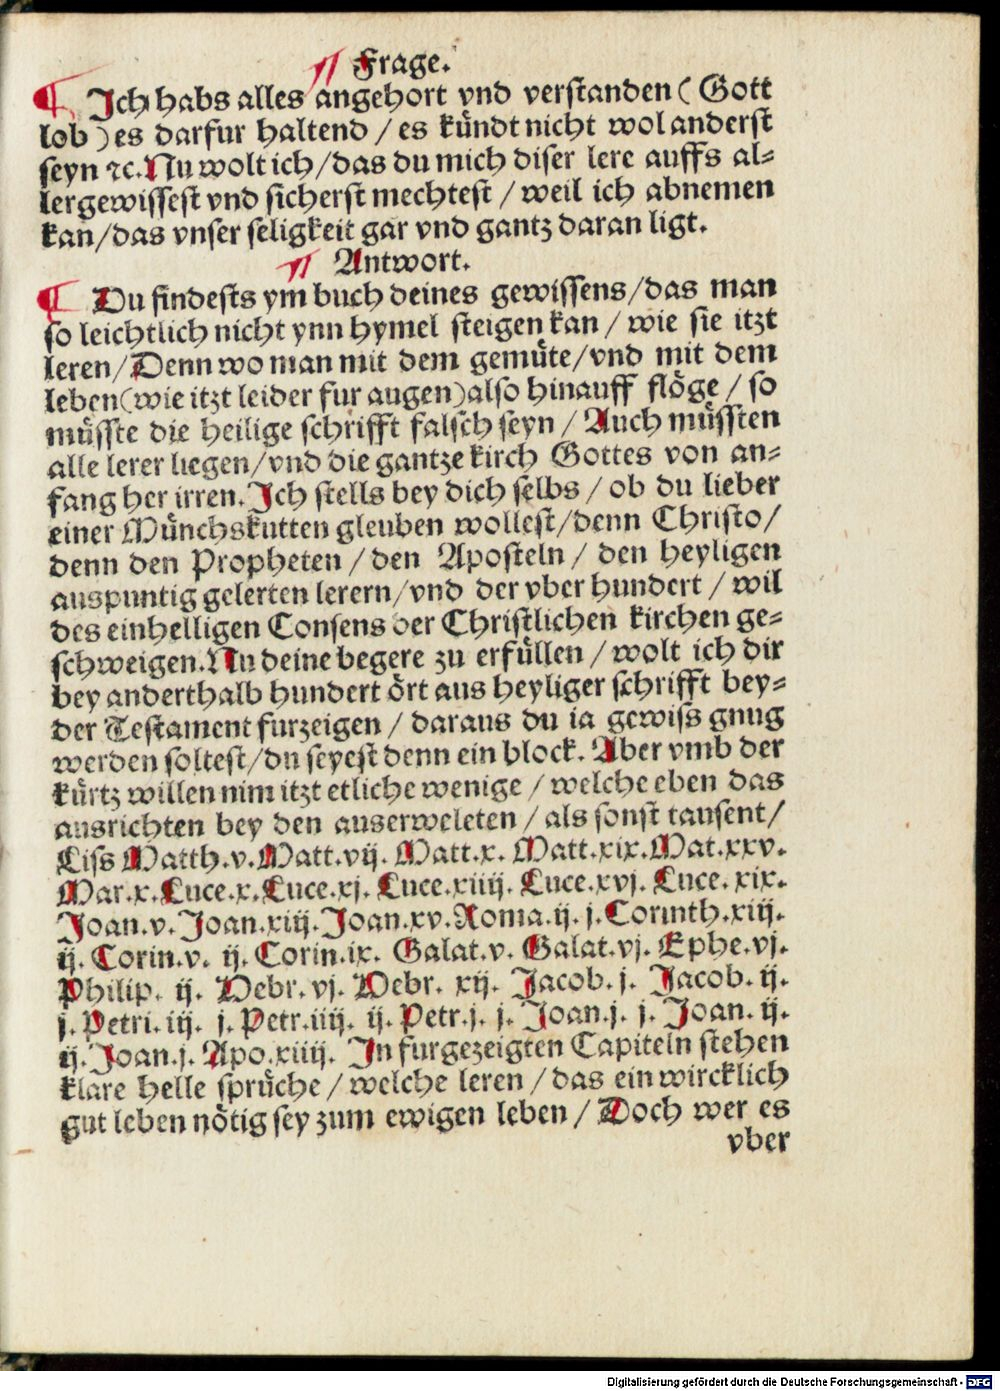 Frage.
¶ Ich habs alles angehort vnd verstanden ( Gott
lob ) es darfur haltend / es kündt nicht wol anderst
seyn ⁊c. Nu wolt ich / das du mich diser lere auffs al⸗
lergewissest vnd sicherst mechtest / weil ich abnemen
kan / das vnser seligkeit gar vnd gantz daran ligt.
Antwort.
¶ Du findests ym buch deines gewissens / das man
so leichtlich nicht ynn hymel steigen kan / wie sie itzt
leren / Denn wo man mit dem gemüte / vnd mit dem
leben ( wie itzt leider fur augen ) also hinauff flöge / so
müsste die heilige schrifft falsch seyn / Auch müssten
alle lerer liegen / vnd die gantze kirch Gottes von an⸗
fang her irren. Ich stells bey dich selbs / ob du lieber
einer Münchskutten gleuben wollest / denn Christo /
denn den Propheten / den Aposteln / den heyligen
auspuntig gelerten lerern / vnd der vber hundert / wil
des einhelligen Consens der Christlichen kirchen ge⸗
schweigen. Nu deine begere zu erfüllen / wolt ich dir
bey anderthalb hundert ört aus heyliger schrifft bey⸗
der Testament furzeigen / daraus du ia gewiss gnug
werden soltest / du seyest denn ein block. Aber vmb der
kürtz willen nim itzt etliche wenige / welche eben das
ausrichten bey den auserweleten / als sonst tausent /
Liss Matth. v. Matt. vij. Matt. x. Matt. xix. Mat. xxv.
Mar. x. Luce. x. Luce. xj. Luce. xiiij. Luce. xvj. Luce. xix.
Joan. v. Joan. xiij. Joan. xv. Roma. ij. j. Corinth. xiij.
ij. Corin. v. ij. Corin. ix. Galat. v. Galat. vj. Ephe. vj.
Philip. ij. Hebr. vj. Hebr. xij. Jacob. j. Jacob. ij.
j. Petri. iij. j. Petr. iiij. ij. Petr. j. j. Joan. j. j. Joan. ij.
ij. Joan. j. Apo. xiiij. In furgezeigten Capiteln stehen
klare helle sprüche / welche leren / das ein wircklich
gut leben nötig sey zum ewigen leben / Doch wer es
vber
Digitalisierung gefördert durch die Deutsche Forschungsgemeinschaft - DFG